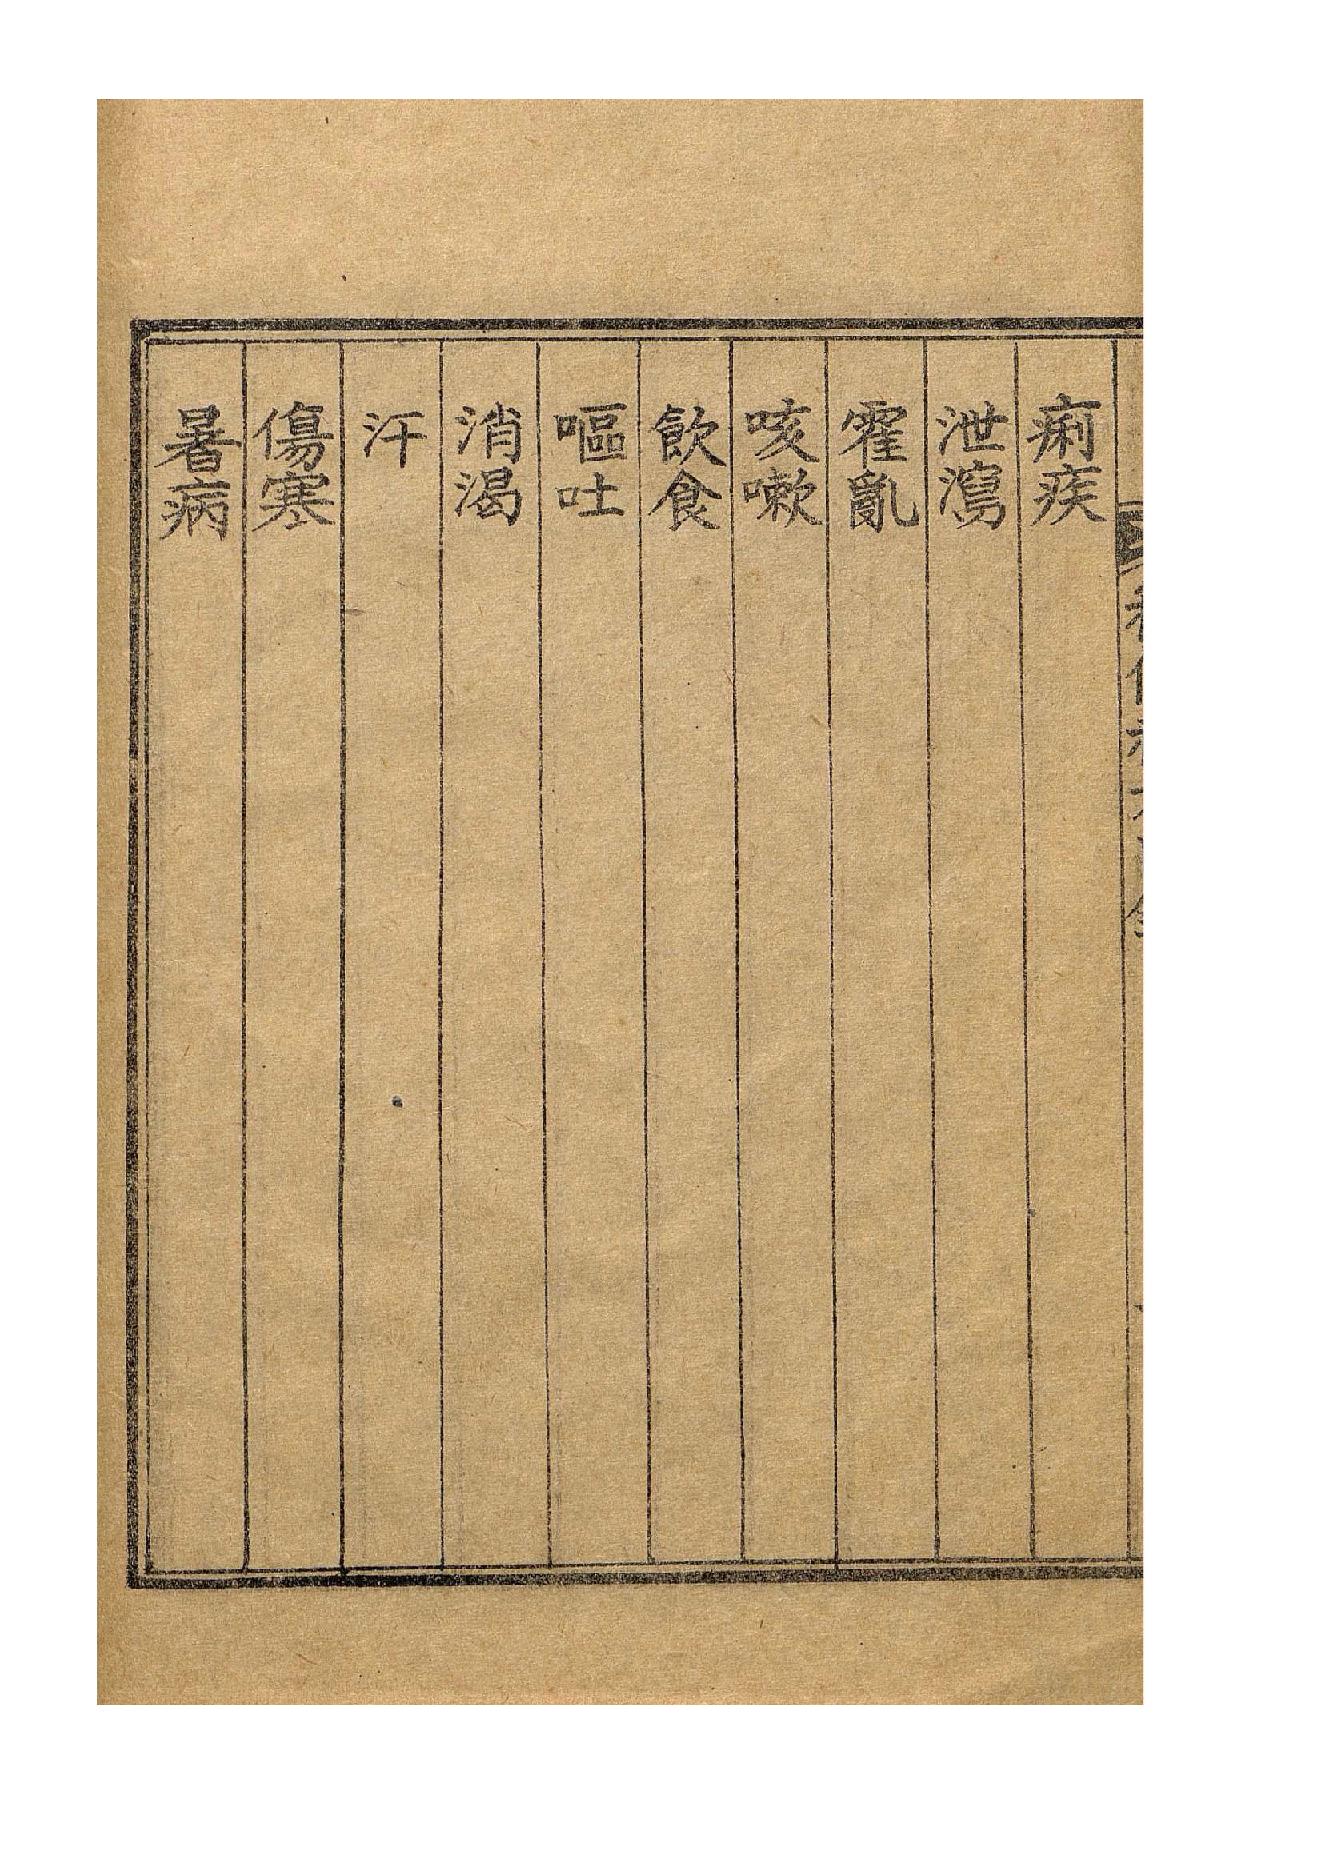 痢疾
泄瀉
霍亂
咳嗽
飲食
嘔吐
消渴
汗
傷寒
暑病